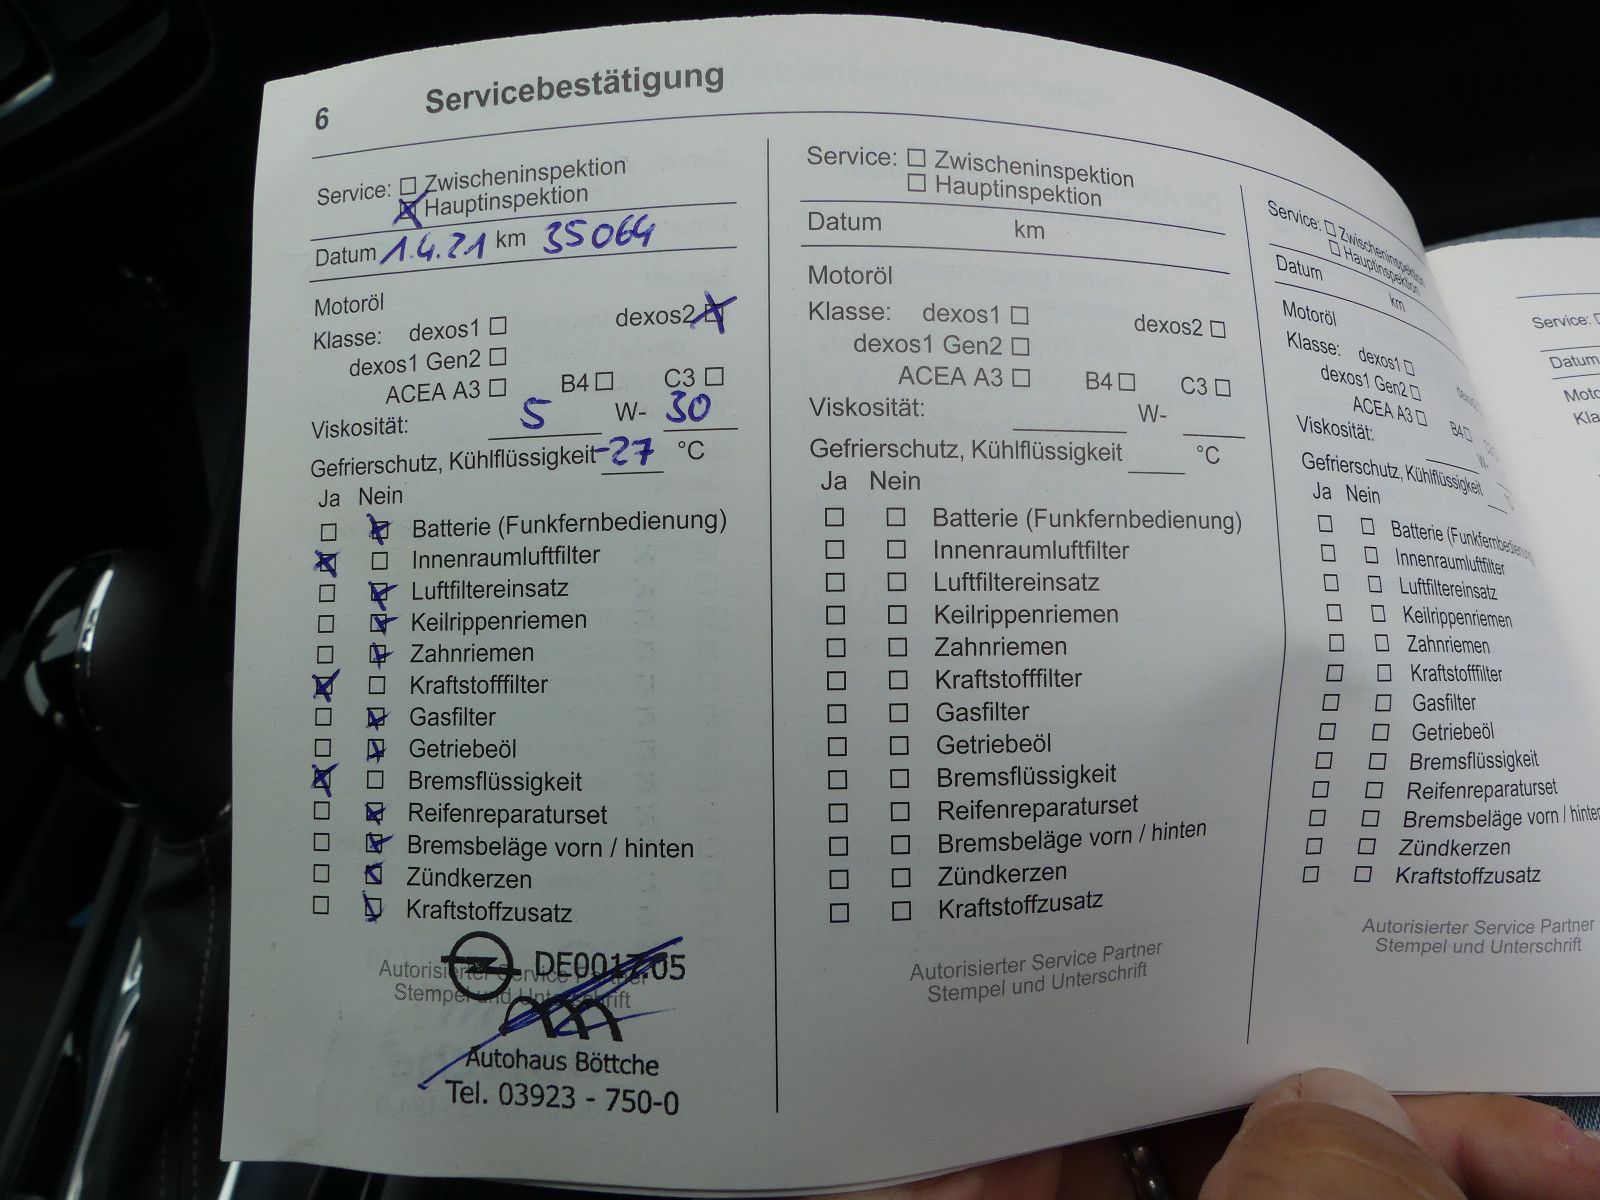 6 Servicebestätigung
Service: Zwischeninspektion
Hauptinspektion
Datum 1.4.21 km 35064
Motoröl
Klasse: dexos1 dexos2
dexos1 Gen2
ACEA A3 B4 C3
Viskosität: 5 W- 30
Gefrierschutz, Kühlflüssigkeit -27 °C
Ja Nein
Batterie (Funkfernbedienung)
Innenraumluftfilter
Luftfiltereinsatz
Keilrippenriemen
Zahnriemen
Kraftstofffilter
Gasfilter
Getriebeöl
Bremsflüssigkeit
Reifenreparaturset
Bremsbeläge vorn / hinten
Zündkerzen
Kraftstoffzusatz
Autorisierter Service Partner
Stempel und Unterschrift
DE0017.05
Autohaus Böttche
Tel. 03923 - 750-0
Service: Zwischeninspektion
Hauptinspektion
Datum km
Motoröl
Klasse: dexos1 dexos2
dexos1 Gen2
ACEA A3 B4 C3
Viskosität: W-
Gefrierschutz, Kühlflüssigkeit °C
Ja Nein
Batterie (Funkfernbedienung)
Innenraumluftfilter
Luftfiltereinsatz
Keilrippenriemen
Zahnriemen
Kraftstofffilter
Gasfilter
Getriebeöl
Bremsflüssigkeit
Reifenreparaturset
Bremsbeläge vorn / hinten
Zündkerzen
Kraftstoffzusatz
Autorisierter Service Partner
Stempel und Unterschrift
Service: Zwischeninspektion
Hauptinspektion
Datum km
Motoröl
Klasse: dexos1
dexos1 Gen2
ACEA A3 B4
Viskosität: W-
Gefrierschutz, Kühlflüssigkeit
Ja Nein
Batterie (Funkfernbedienung
Innenraumluftfilter
Luftfiltereinsatz
Keilrippenriemen
Zahnriemen
Kraftstofffilter
Gasfilter
Getriebeöl
Bremsflüssigkeit
Reifenreparaturset
Bremsbeläge vorn / hinten
Zündkerzen
Kraftstoffzusatz
Autorisierter Service Partner
Stempel und Unterschrift
Service:
Datum
Moto
Kla